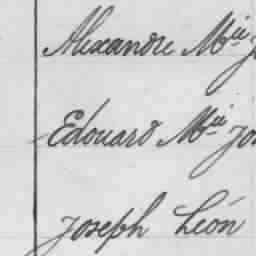 Alexandre Mie J
Edouard Mie Jos
Joseph Léon